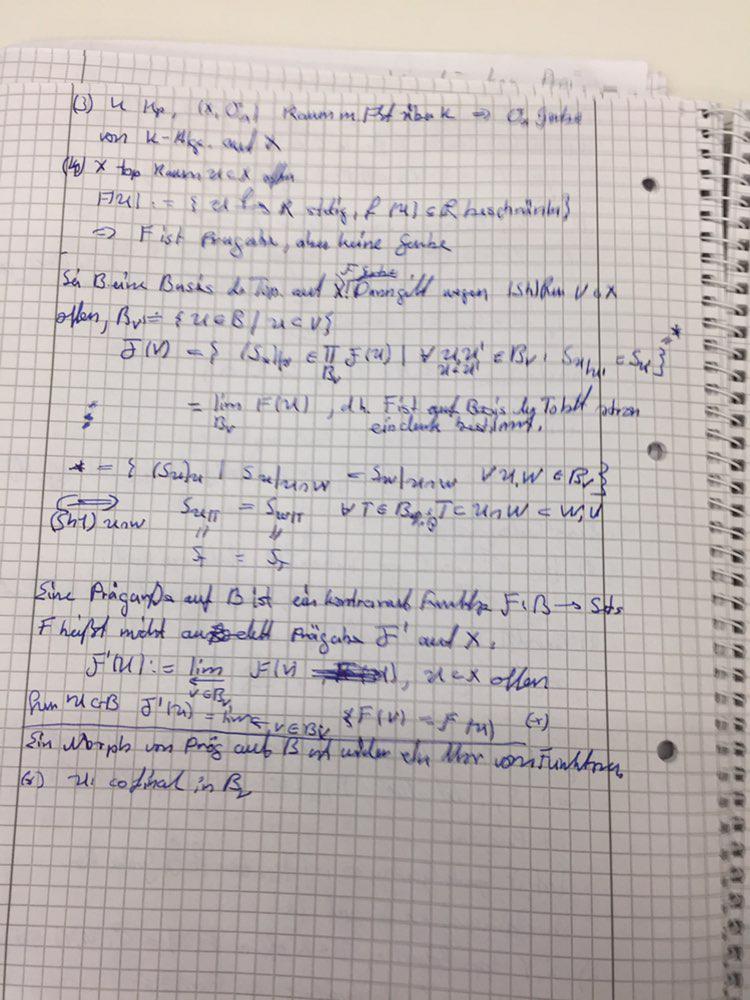 (3) K Kp, (X, O_X) Raum m. Fkt über K => O_X Garbe
von K-Alg. auf X
(4) X top Raum U ⊂ X offen
F(U) := { U f→ R stetig, f(U) ⊂ R beschränkt}
=> F ist Prägarbe, aber keine Garbe
Sei B eine Basis d. Top. auf X. F Garbe Dann gilt wegen (Sh) für V ⊂ X
offen, B_V := { U ∈ B | U ⊂ V}
F(V) = { (S_U)_U ∈ ∏_{B_V} F(U) | ∀ U, U' ∈ B_V, U ⊂ U' : S_{U'|U} = S_U } =*
= lim_{B_V} F(U), dh. F ist auf Basis der
eindeut. bestimmt.
* = { (S_U)_U | S_U|_{U∩W} = S_W|_{U∩W} ∀ U, W ∈ B_V }
<=> (Sh1) U∩W S_{U|T} = S_{W|T} ∀ T ∈ B, T ⊂ U∩W ⊂ W, U
" "
S_T = S_T
Eine Prägarbe auf B ist ein kontravar Funktor F: B → Sets
F heißt Prägarbe F' auf X.
F'(U) := lim_{← V ∈ B_U} F(V), U ⊂ X offen
Für U ∈ B F'(U) = lim_{← V ∈ B_U} F(V) = F(U) (*)
Ein Morph von Präg auf B ist wieder ein Mor von Funktoren
(*) U cofinal in B_U